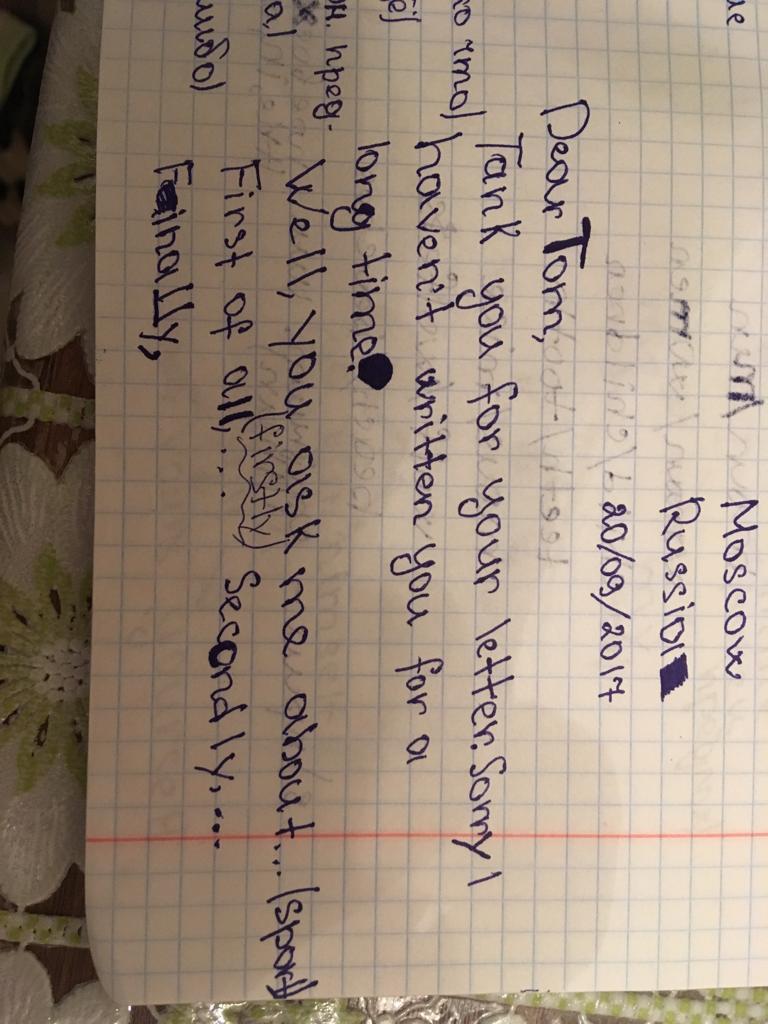 Moscow
Russia
20/09/2017
Dear Tom,
Tank you for your letter. Sorry I
haven't written you for a
long time.
Well, you ask me about... (sport)
First of all,... (firstly) Secondly,...
Finally,
что)
он. пред-